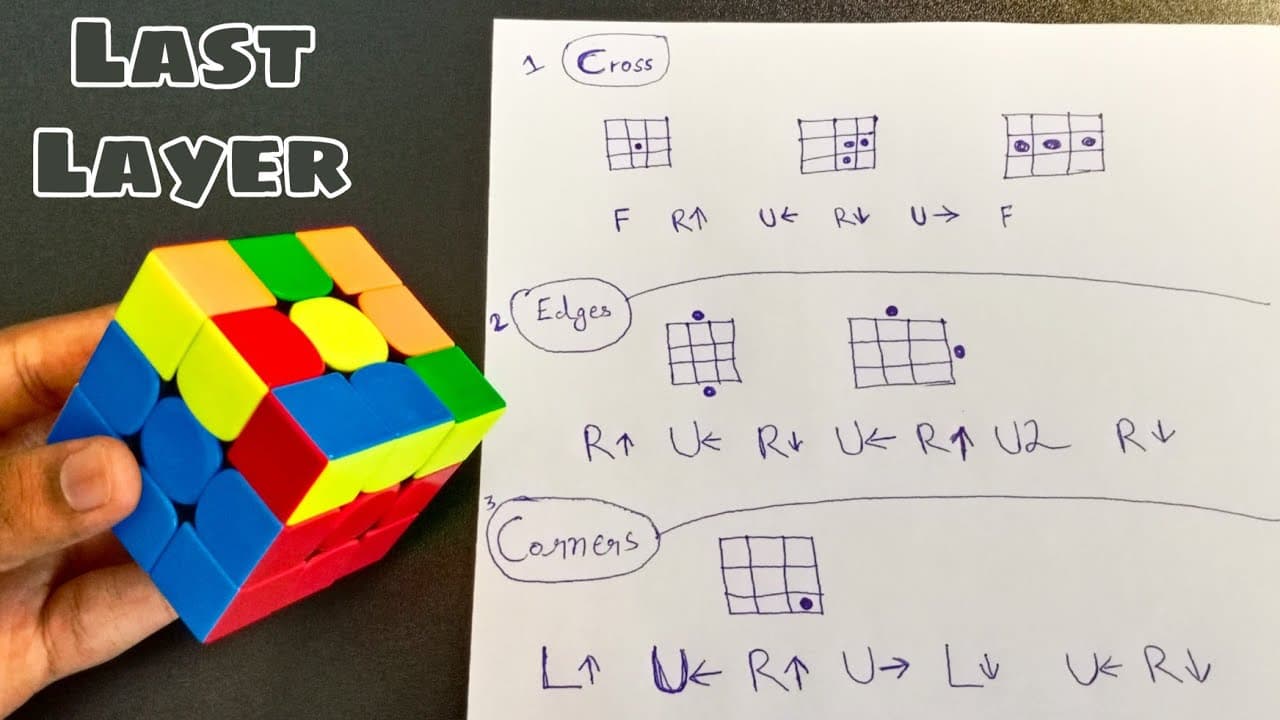 LAST
LAYER
1 Cross
F R↑ U← R↓ U→ F
2 Edges
R↑ U← R↓ U← R↑ U2 R↓
3 Corners
L↑ U← R↑ U→ L↓ U← R↓